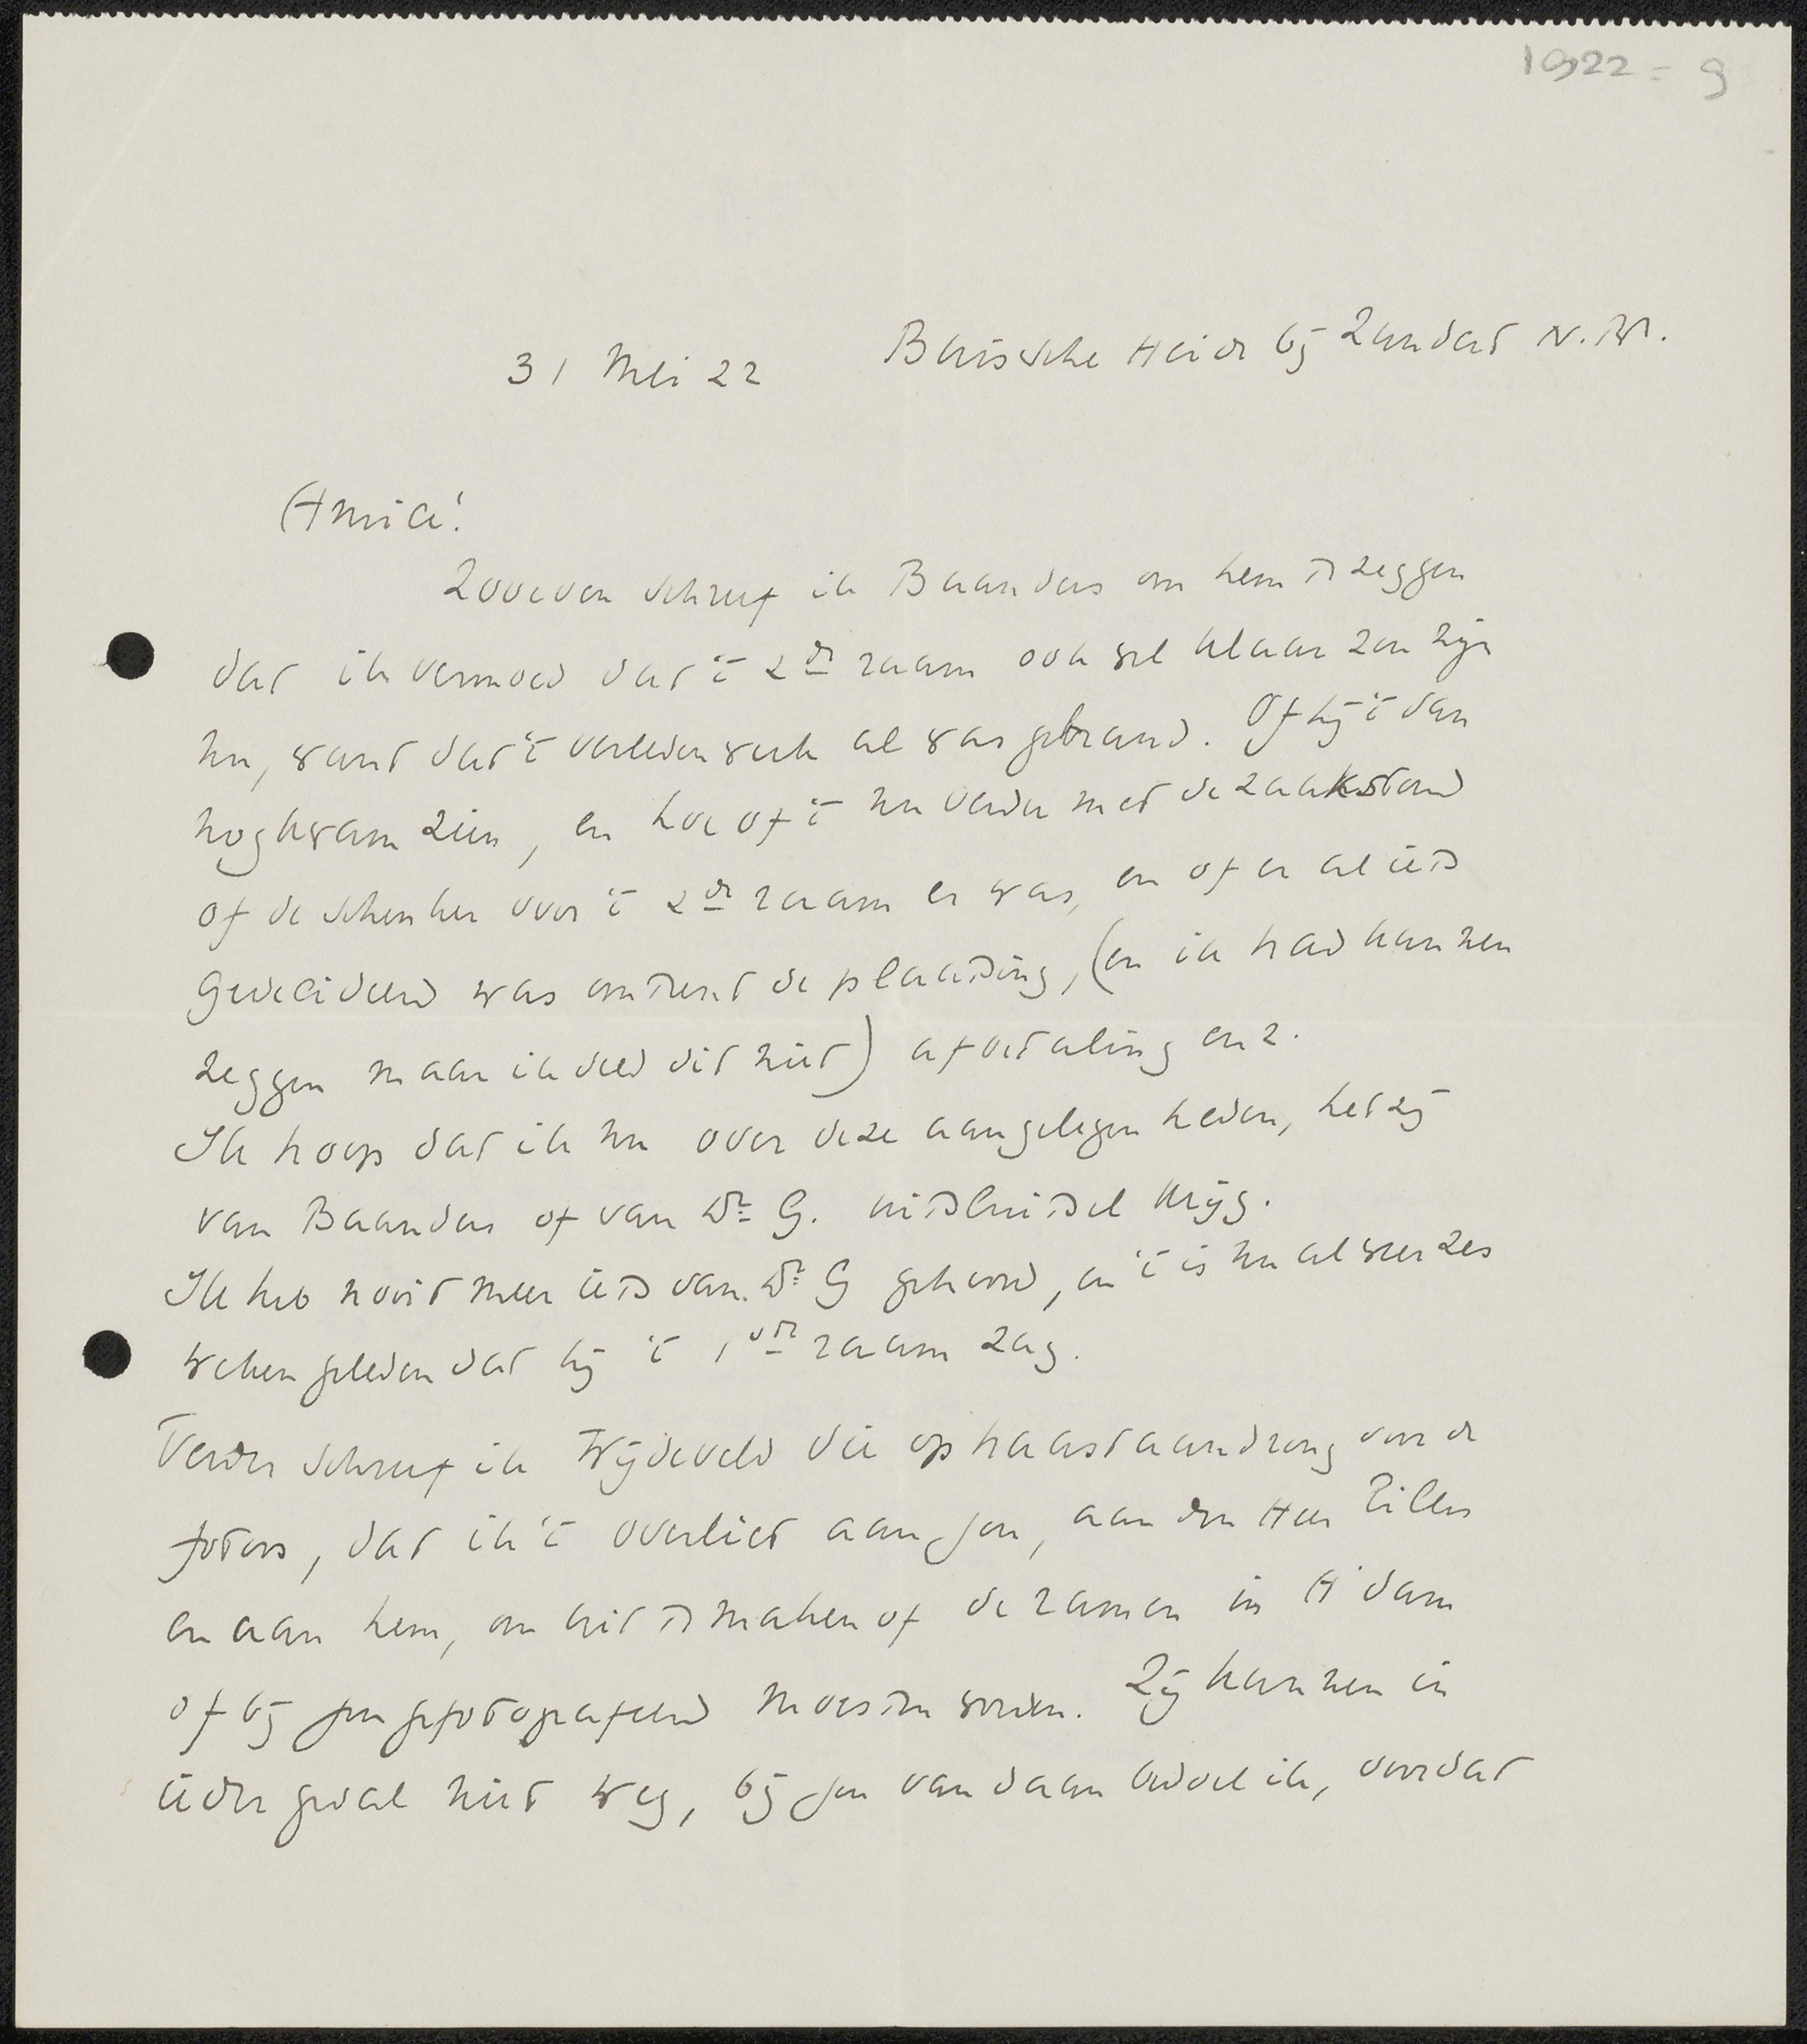 1922 = 9
31 Mei 22 Buissche Heide bij Zundert N.Br.
Amice!
Zooeven schreef ik Baanders om hem te zeggen
dat ik vermoed dat 't 2de raam ook wel klaar zou zijn
nu, want dat 't verleden week al was gebrand. Of hij 't dan
nog kwam zien, en hoe of 't nu verder met de zaak stond
of de schenker voor 't 2de raam er was, en of er al iets
gedecideerd was omtrent de plaatsing, (en ik had kunnen
zeggen maar ik deed dit niet) afbetaling enz.
Ik hoop dat ik nu over deze aangelegenheden, hetzij
van Baanders of van Dr. G. uitsluitsel krijg.
Ik heb nooit meer iets van Dr. G gehoord, en 't is nu al weer zes
weken geleden dat hij 't 1ste raam zag.
Verder schreef ik Wijdeveld die op haast aandrong voor de
foto's, dat ik 't overliet aan jou, aan den Heer Zilles
en aan hem, om uit te maken of de ramen in A'dam
of bij jou gefotografeerd moesten worden. Zij kunnen in
ieder geval niet weg, bij jou vandaan bedoel ik, voordat